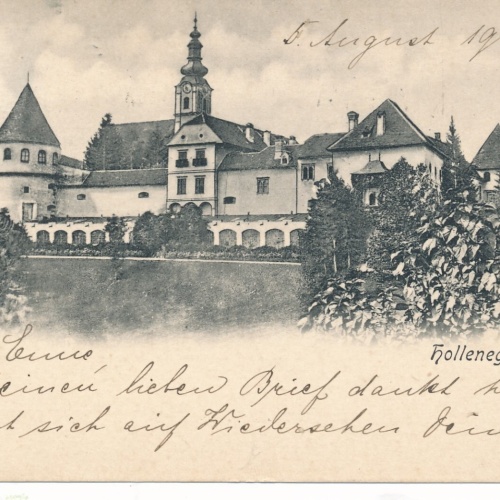 5. August 19
Holleneg
Emmé
einen lieben Brief dankt h
t sich auf Wiedersehen Dein